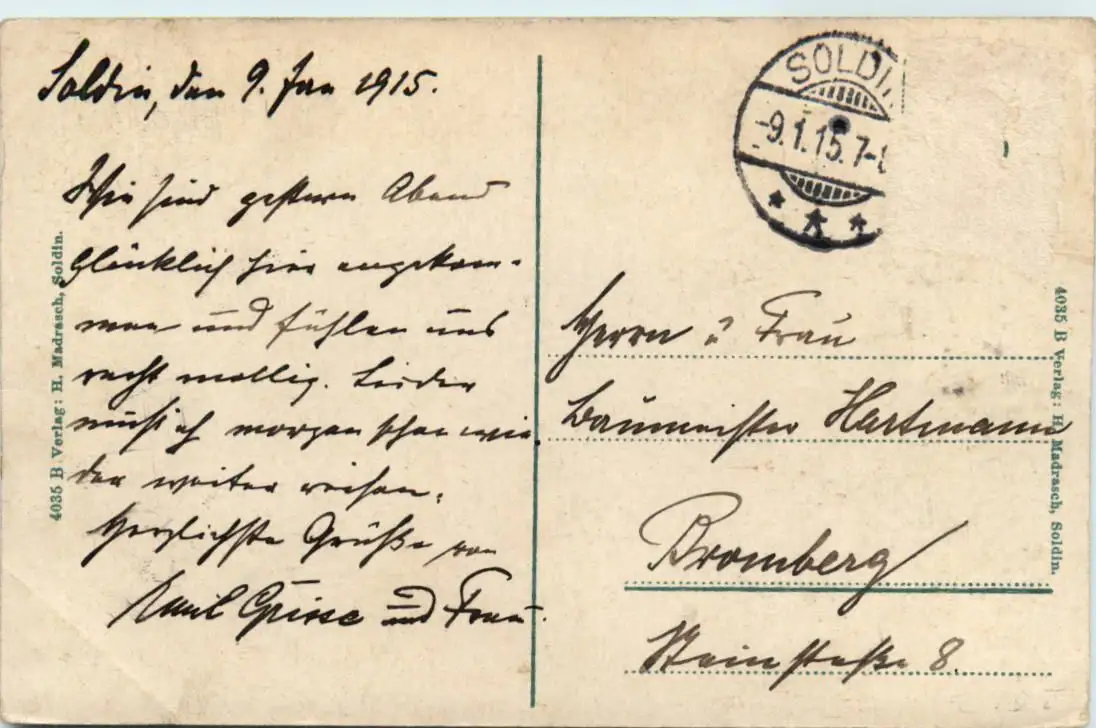 Soldin, den 9. Jan 1915.
Wir sind gestern Abend
glücklich hier angekom-
men und fühlen uns
recht mollig. Leider
muß ich morgen schon wie
der weiter reisen.
Herzlichste Grüße von
Emil und Frau.
4035 B Verlag: H. Madrasch, Soldin.
SOLDIN
-9.1.15.7-8
Herrn u Frau
Baumeister Hartmann
Bromberg
Steinstraße 8.
4035 B Verlag: H. Madrasch, Soldin.